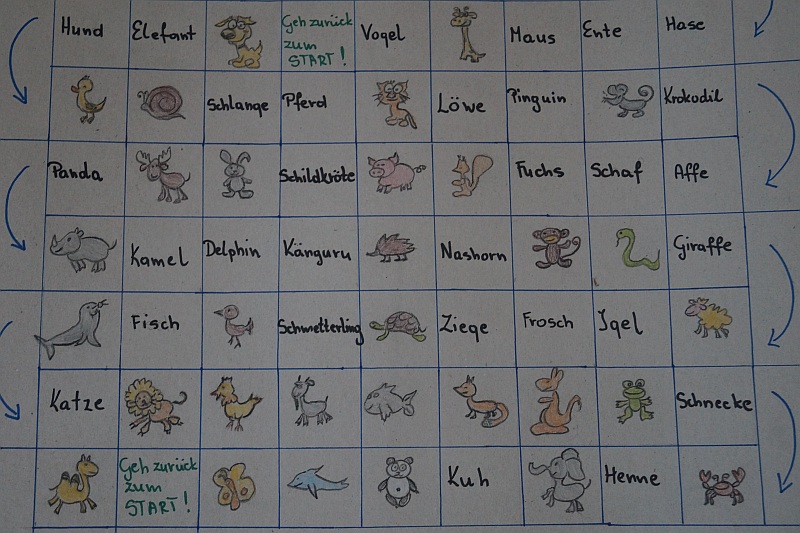 Hund Elefant Geh zurück zum START! Vogel Maus Ente Hase
Schlange Pferd Löwe Pinguin Krokodil
Panda Schildkröte Fuchs Schaf Affe
Kamel Delphin Känguru Nashorn Giraffe
Fisch Schmetterling Ziege Frosch Igel
Katze Schnecke
Geh zurück zum START! Kuh Henne